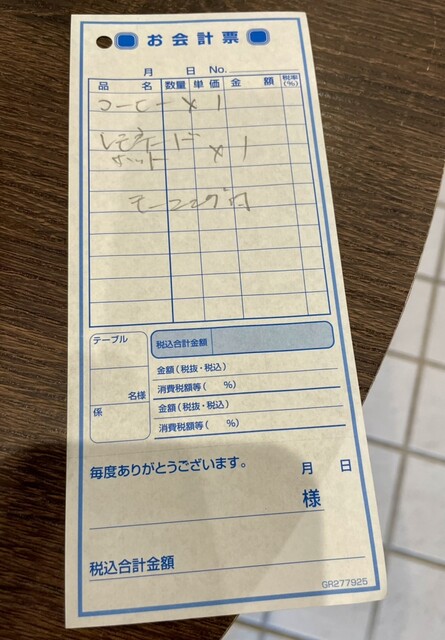 お会計票
月 日 No.
品 名 数量 単価 金 額 税率(%)
コーヒー × 1
レモネード
ホット × 1
モーニング
テーブル
名様
係
税込合計金額
金額(税抜・税込)
消費税額等( %)
金額(税抜・税込)
消費税額等( %)
毎度ありがとうございます。 月 日
様
税込合計金額
GR277925